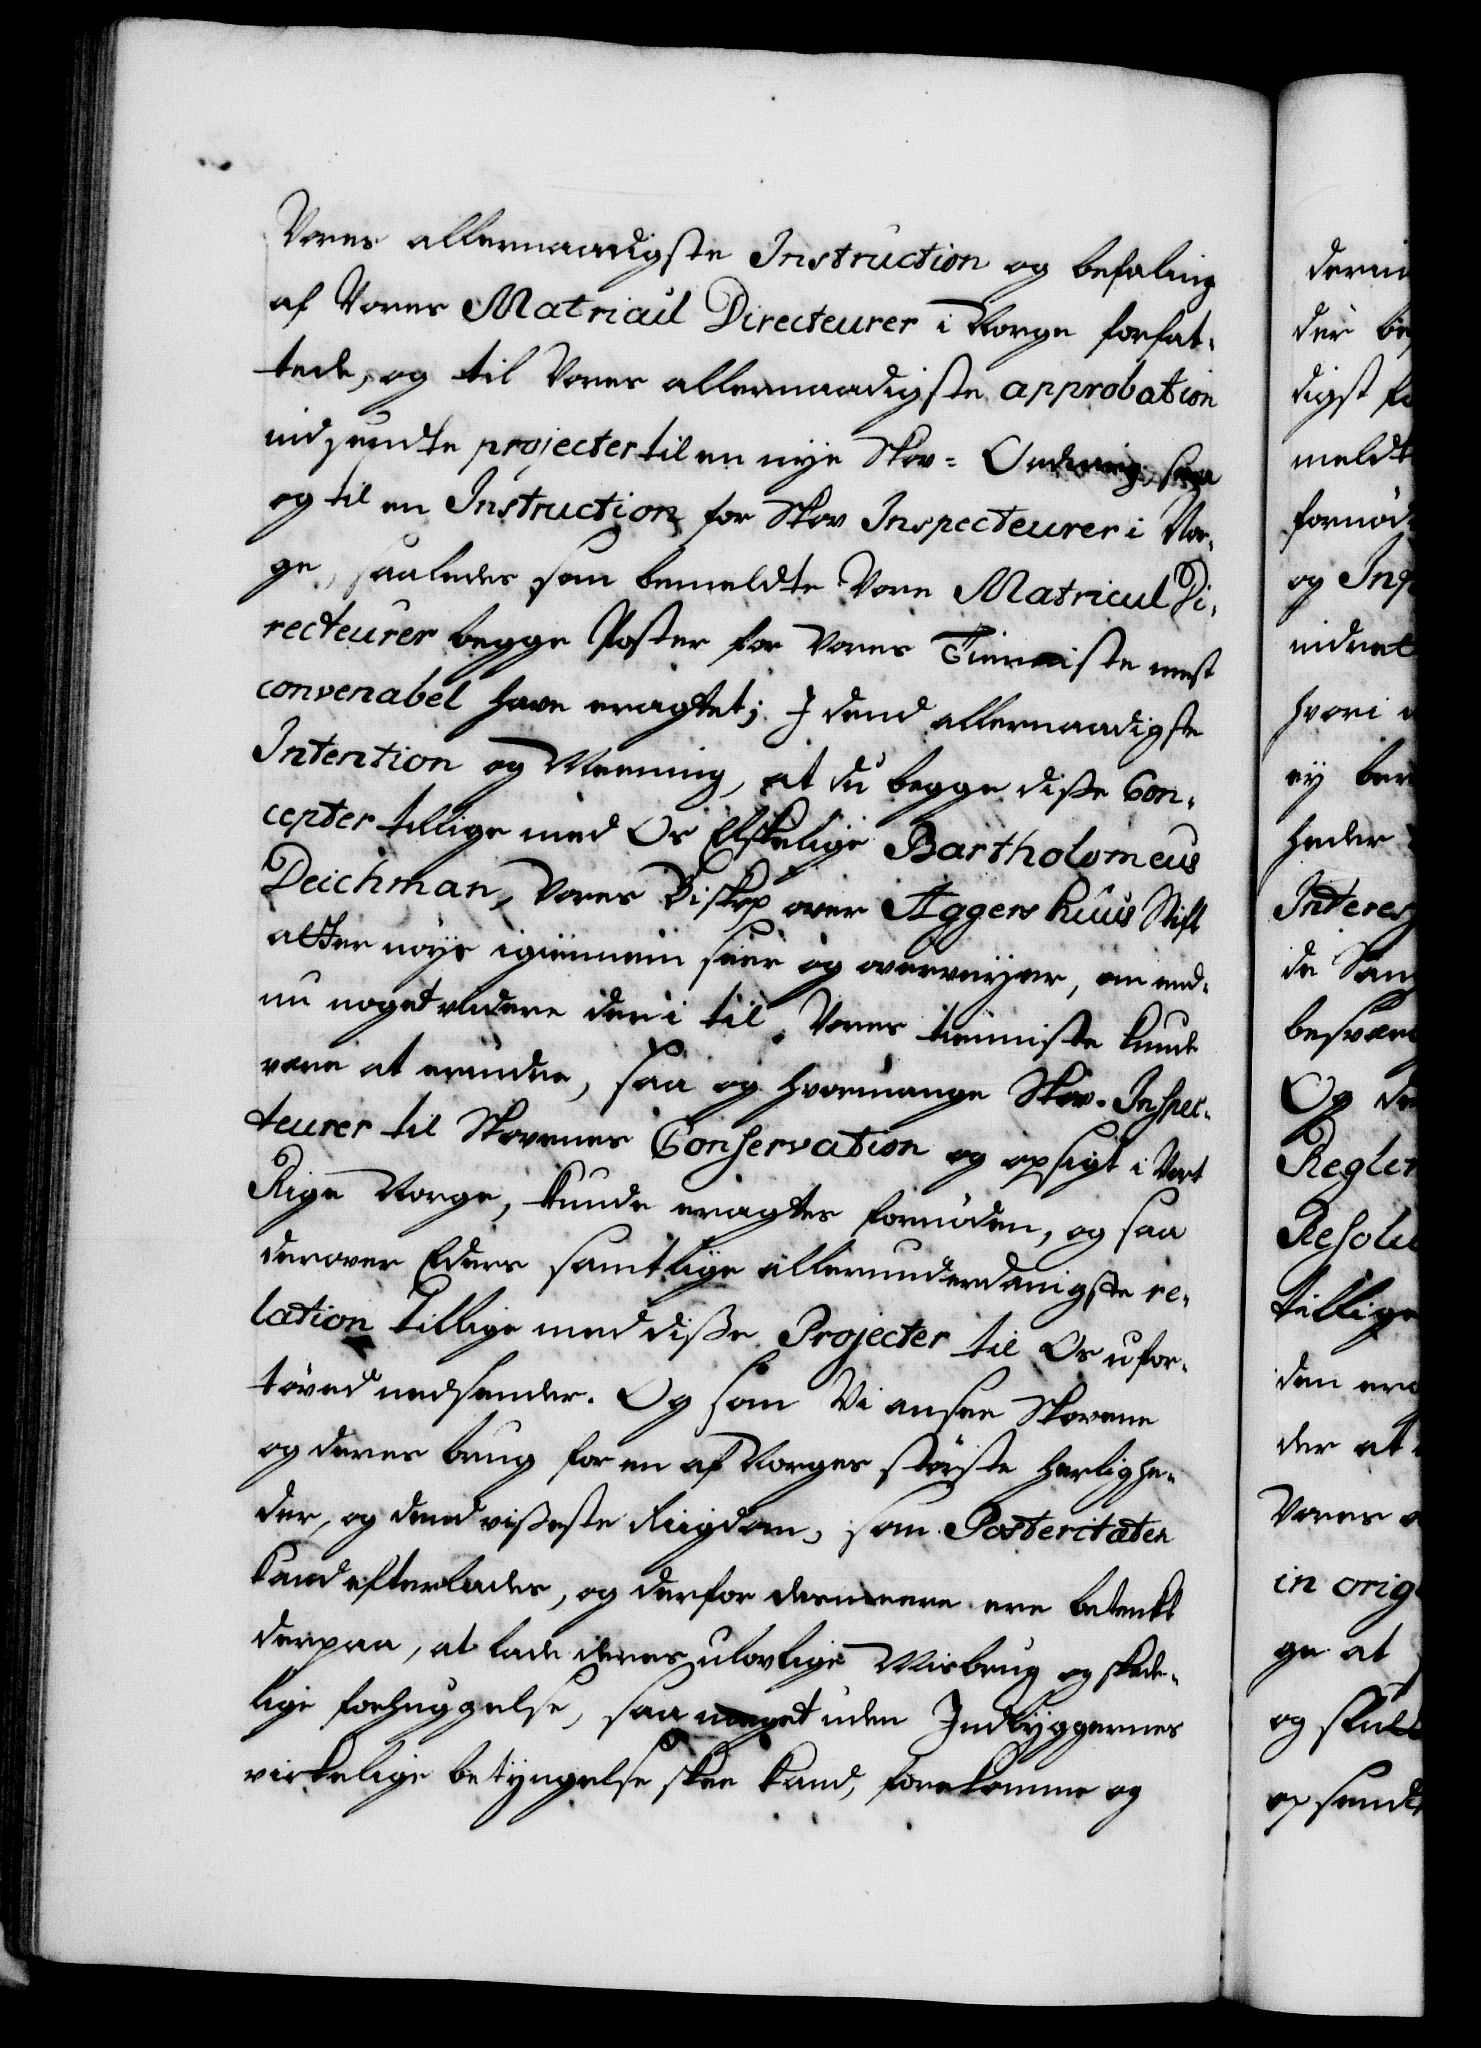 Vores allernaadigste Instruction og befaling
af Vores Matricul Directeurer i Norge forfat-
tede, og til Vores allernaadigste approbation
indsendte projecter til en nye Skov- Ordning, saa
og til en Instruction for Skov Inspecteurer i Nor-
ge, saaledes som bemeldte Vore Matricul Di-
recteurer begge Poster for Vores Tienniste mest
convenabel have eragtet; I dend allernaadigste
Intention og Meening, at du begge disse Con-
cepter tillige med Os Elskelige Bartholomeus
Deichman, Vores Biskop over Aggershuus Stift
altsee nøye igiennem seer og overveyer, om end-
nu noget videre deri til Vores tienniste kunde
være at erindre, saa og hvormange Skov-Inspec-
teurer til Skovenes Conservation og opsigt i Vort
Rige Norge, kunde eragtes fornøden, og saa
derover Eders samtlige allerunderdanigste re-
lation tillige med disse Projecter til Os ufor-
tøved nedsender. Og som Vi ansee Skovene
og deres brug for en af Norges største herlighe-
der, og dend visseste Riigdom, som Posteriteten
kand efterlades, og derfor desmeere ere betenkt
derpaa, at lade deres ulovlige Misbrug og skade-
lige forhuggelse, saa meget uden Indbyggernes
virkelige betyngelse skee kand, forekomme og